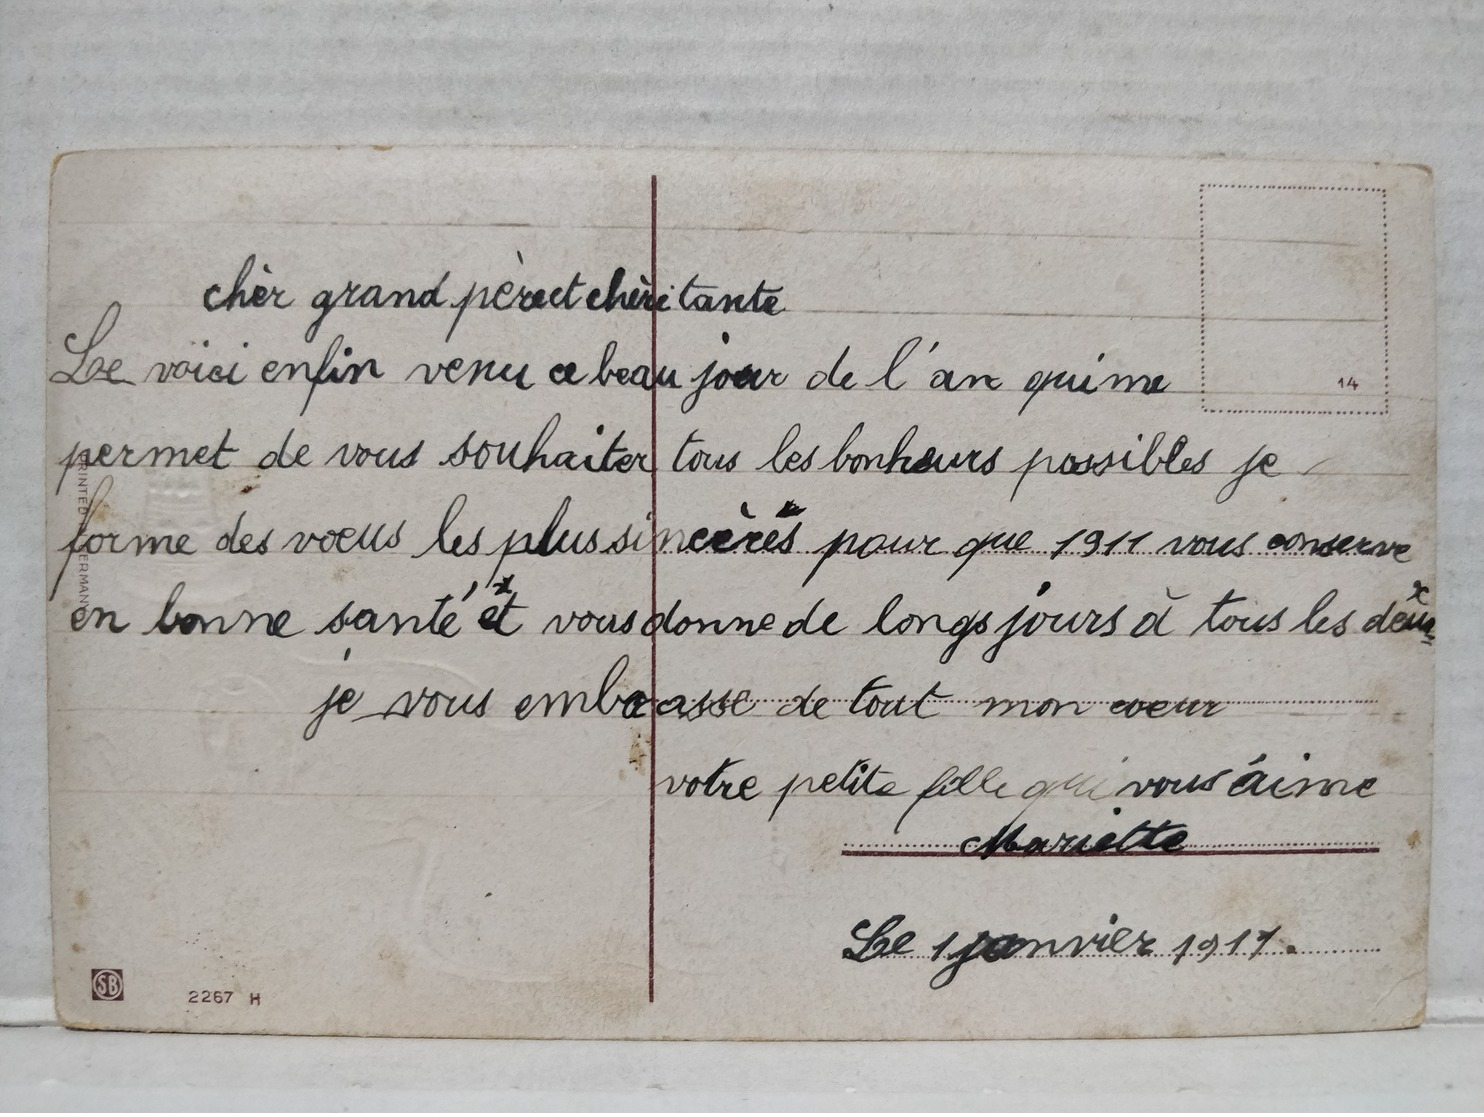 chèr grand père et chère tante
Le voici enfin venu ce beau jour de l'an qui me
permet de vous souhaiter tous les bonheurs possibles je
forme des voeus les plus sincèrès pour que 1911 vous conserve
en bonne santé et vous donne de longs jours à tous les deux
je vous embrasse de tout mon coeur
votre petite fille qui vous aime
Mariette
Le 1 janvier 1911.
14
PRINTED IN GERMANY
SB
2267 H